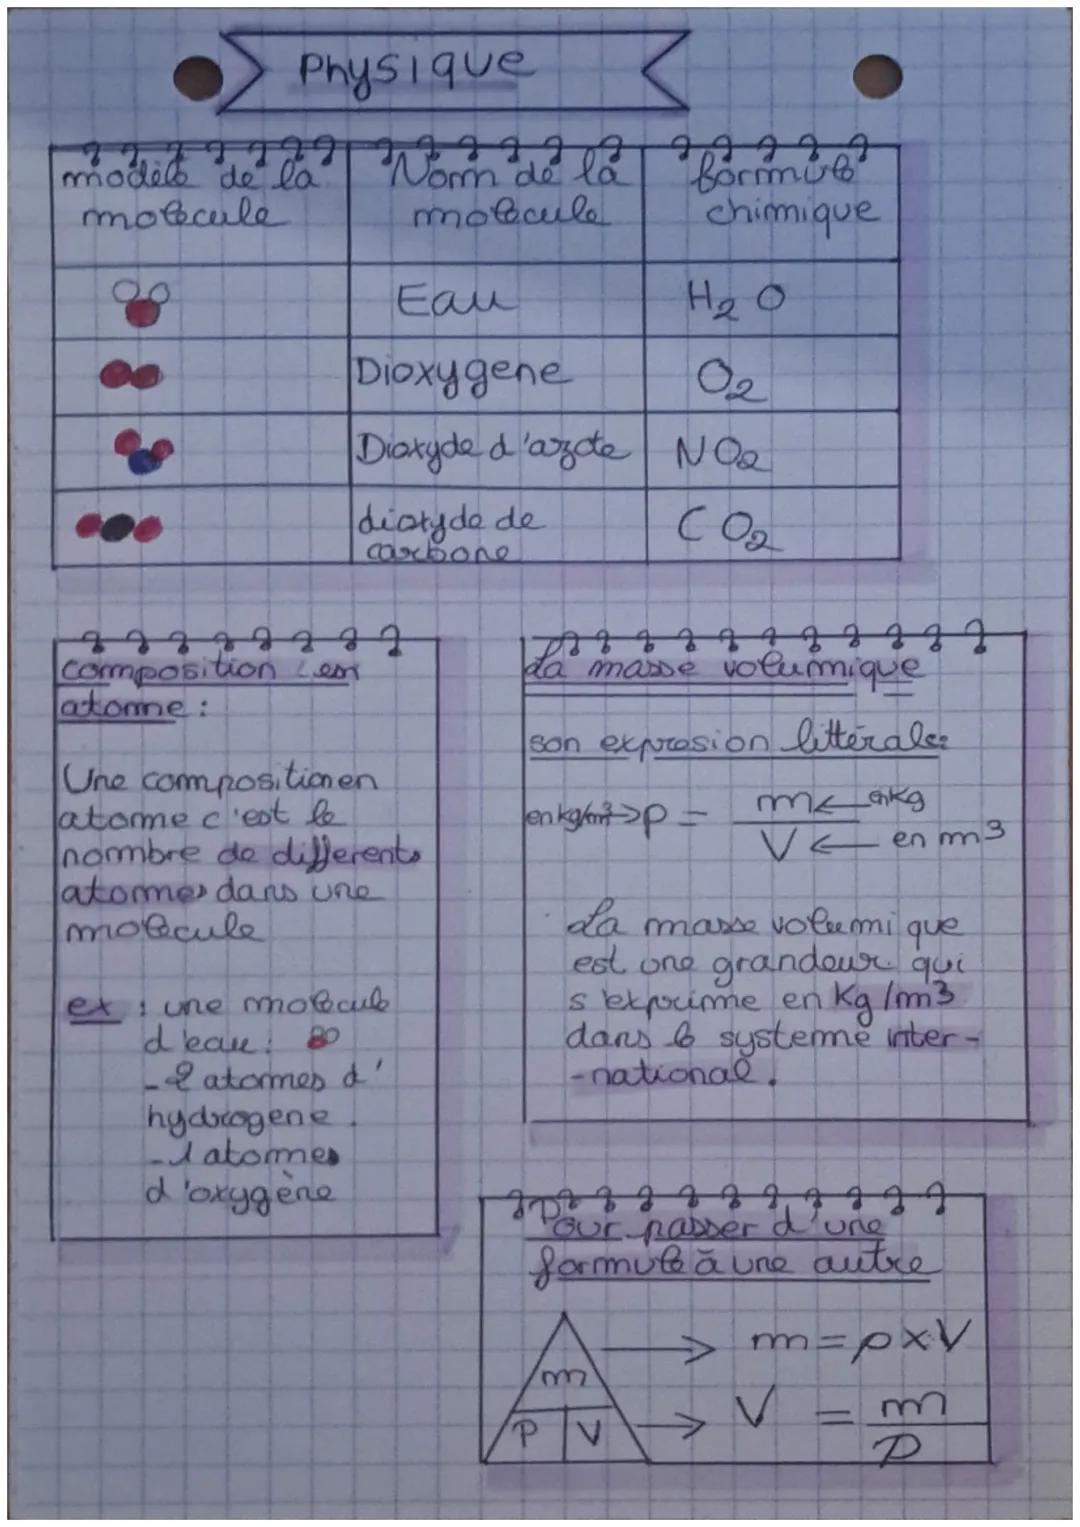 Physique
modèle de la
molécule
Nom de la
molécule
formule
chimique
Eau
H2O
Dioxygene
O2
Dioxyde d'azote
NO2
dioxyde de
carbone
CO2
composition en
atome :
Une composition en
atome c'est le
nombre de differents
atomes dans une
molécule
ex : une molécule
d'eau :
- 2 atomes d'
hydrogene.
- 1 atomes
d'oxygène
La masse volumique
son expresion littérale:
en kg/m3 → ρ = m ← en kg
V ← en m3
La masse volumique
est une grandeur qui
s'exprime en Kg/m3
dans le systeme inter-
-national.
Pour passer d'une
formule à une autre
m
ρ V
→ m = ρ x V
→ V = m
ρ